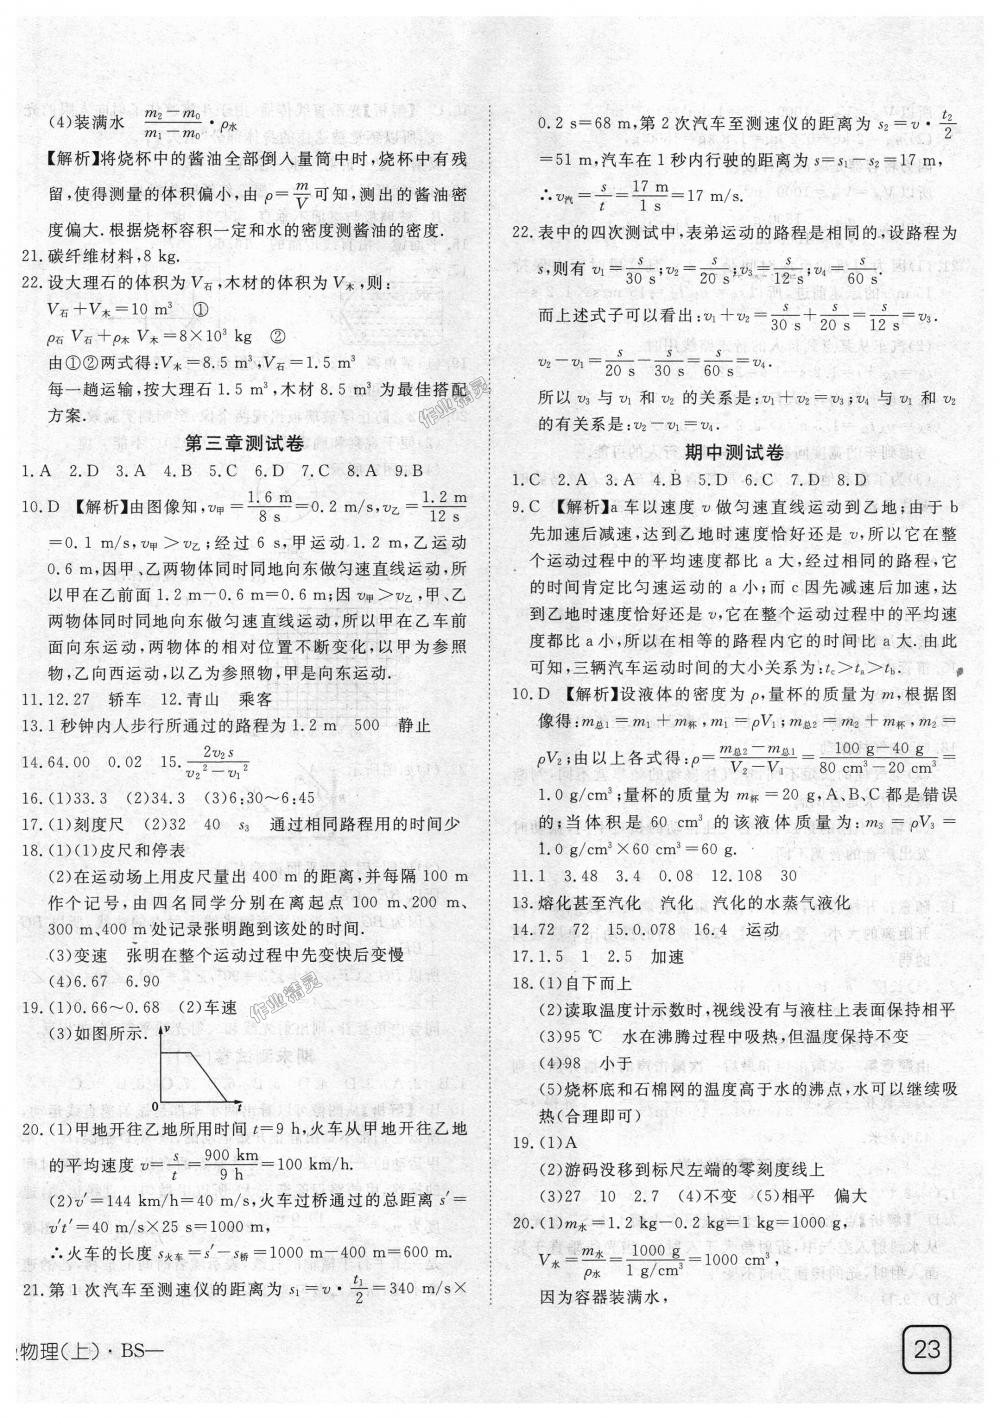 (4)装满水 (m₂－m₀)/(m₁－m₀)·ρ水
【解析】将烧杯中的酱油全部倒入量筒中时,烧杯中有残
留,使得测量的体积偏小,由 ρ＝m/V 可知,测出的酱油密
度偏大.根据烧杯容积一定和水的密度测酱油的密度.
21.碳纤维材料,8 kg.
22.设大理石的体积为 V石,木材的体积为 V木,则:
V石＋V木＝10 m³ ①
ρ石 V石＋ρ木 V木＝8×10³ kg ②
由①②两式得:V木＝8.5 m³,V石＝1.5 m³
每一趟运输,按大理石 1.5 m³,木材 8.5 m³ 为最佳搭配
方案.
第三章测试卷
1.A 2.D 3.A 4.B 5.C 6.D 7.C 8.A 9.B
10.D 【解析】由图像知,v甲＝1.6 m/8 s＝0.2 m/s,v乙＝1.2 m/12 s
＝0.1 m/s,v甲＞v乙;经过 6 s,甲运动 1.2 m,乙运动
0.6 m,因甲、乙两物体同时同地向东做匀速直线运动,所
以甲在乙前面 1.2 m－0.6 m＝0.6 m;因 v甲＞v乙,甲、乙
两物体同时同地向东做匀速直线运动,所以甲在乙车前
面向东运动,两物体的相对位置不断变化,以甲为参照
物,乙向西运动,以乙为参照物,甲是向东运动.
11.12.27 轿车 12.青山 乘客
13.1 秒钟内人步行所通过的路程为 1.2 m 500 静止
14.64.00 0.02 15.2v₂s/(v₂²－v₁²)
16.(1)33.3 (2)34.3 (3)6:30～6:45
17.(1)刻度尺 (2)32 40 s₃ 通过相同路程用的时间少
18.(1)(1)皮尺和停表
(2)在运动场上用皮尺量出 400 m 的距离,并每隔 100 m
作个记号,由四名同学分别在离起点 100 m、200 m、
300 m、400 m 处记录张明跑到该处的时间.
(3)变速 张明在整个运动过程中先变快后变慢
(4)6.67 6.90
19.(1)0.66～0.68 (2)车速
(3)如图所示.
v
0 t
20.(1)甲地开往乙地所用时间 t＝9 h,火车从甲地开往乙地
的平均速度 v＝s/t＝900 km/9 h＝100 km/h.
(2)v′＝144 km/h＝40 m/s,火车过桥通过的总距离 s′＝
v′t′＝40 m/s×25 s＝1000 m,
∴火车的长度 s火车＝s′－s桥＝1000 m－400 m＝600 m.
21.第 1 次汽车至测速仪的距离为 s₁＝v·t₁/2＝340 m/s×
0.2 s＝68 m,第 2 次汽车至测速仪的距离为 s₂＝v·t₂/2
＝51 m,汽车在 1 秒内行驶的距离为 s＝s₁－s₂＝17 m,
∴v汽＝s/t＝17 m/1 s＝17 m/s.
22.表中的四次测试中,表弟运动的路程是相同的,设路程为
s,则有 v₁＝s/30 s;v₂＝s/20 s;v₃＝s/12 s;v₄＝s/60 s.
而上述式子可以看出:v₁＋v₂＝s/30 s＋s/20 s＝s/12 s＝v₃.
v₂－v₁＝s/20 s－s/30 s＝s/60 s＝v₄.
所以 v₃ 与 v₁ 和 v₂ 的关系是:v₁＋v₂＝v₃;v₄ 与 v₁ 和 v₂
的有关系是:v₂－v₁＝v₄.
期中测试卷
1.C 2.A 3.A 4.B 5.D 6.C 7.D 8.D
9.C 【解析】a 车以速度 v 做匀速直线运动到乙地;由于 b
先加速后减速,达到乙地时速度恰好还是 v,所以它在整
个运动过程中的平均速度都比 a 大,经过相同的路程,它
的时间肯定比匀速运动的 a 小;而 c 因先减速后加速,达
到乙地时速度恰好还是 v,它在整个运动过程中的平均速
度都比 a 小,所以在相等的路程内它的时间比 a 大.由此
可知,三辆汽车运动时间的大小关系为:tc＞ta＞tb.
10.D 【解析】设液体的密度为 ρ,量杯的质量为 m,根据图
像得:m总1＝m₁＋m杯,m₁＝ρV₁;m总2＝m₂＋m杯,m₂＝
ρV₂;由以上各式得:ρ＝(m总2－m总1)/(V₂－V₁)＝(100 g－40 g)/(80 cm³－20 cm³)＝
1.0 g/cm³;量杯的质量为 m杯＝20 g,A、B、C 都是错误
的;当体积是 60 cm³ 的该液体质量为:m₃＝ρV₃＝
1.0 g/cm³×60 cm³＝60 g.
11.1 3.48 3.4 0.08 12.108 30
13.熔化甚至汽化 汽化 汽化的水蒸气液化
14.72 72 15.0.078 16.4 运动
17.1.5 1 2.5 加速
18.(1)自下而上
(2)读取温度计示数时,视线没有与液柱上表面保持相平
(3)95 ℃ 水在沸腾过程中吸热,但温度保持不变
(4)98 小于
(5)烧杯底和石棉网的温度高于水的沸点,水可以继续吸
热(合理即可)
19.(1)A
(2)游码没移到标尺左端的零刻度线上
(3)27 10 2.7 (4)不变 (5)相平 偏大
20.(1)m水＝1.2 kg－0.2 kg＝1 kg＝1000 g,
V水＝m水/ρ水＝1000 g/1 g/cm³＝1000 cm³,
因为容器装满水,
物理(上)·BS—
23
作业精灵
作业精灵